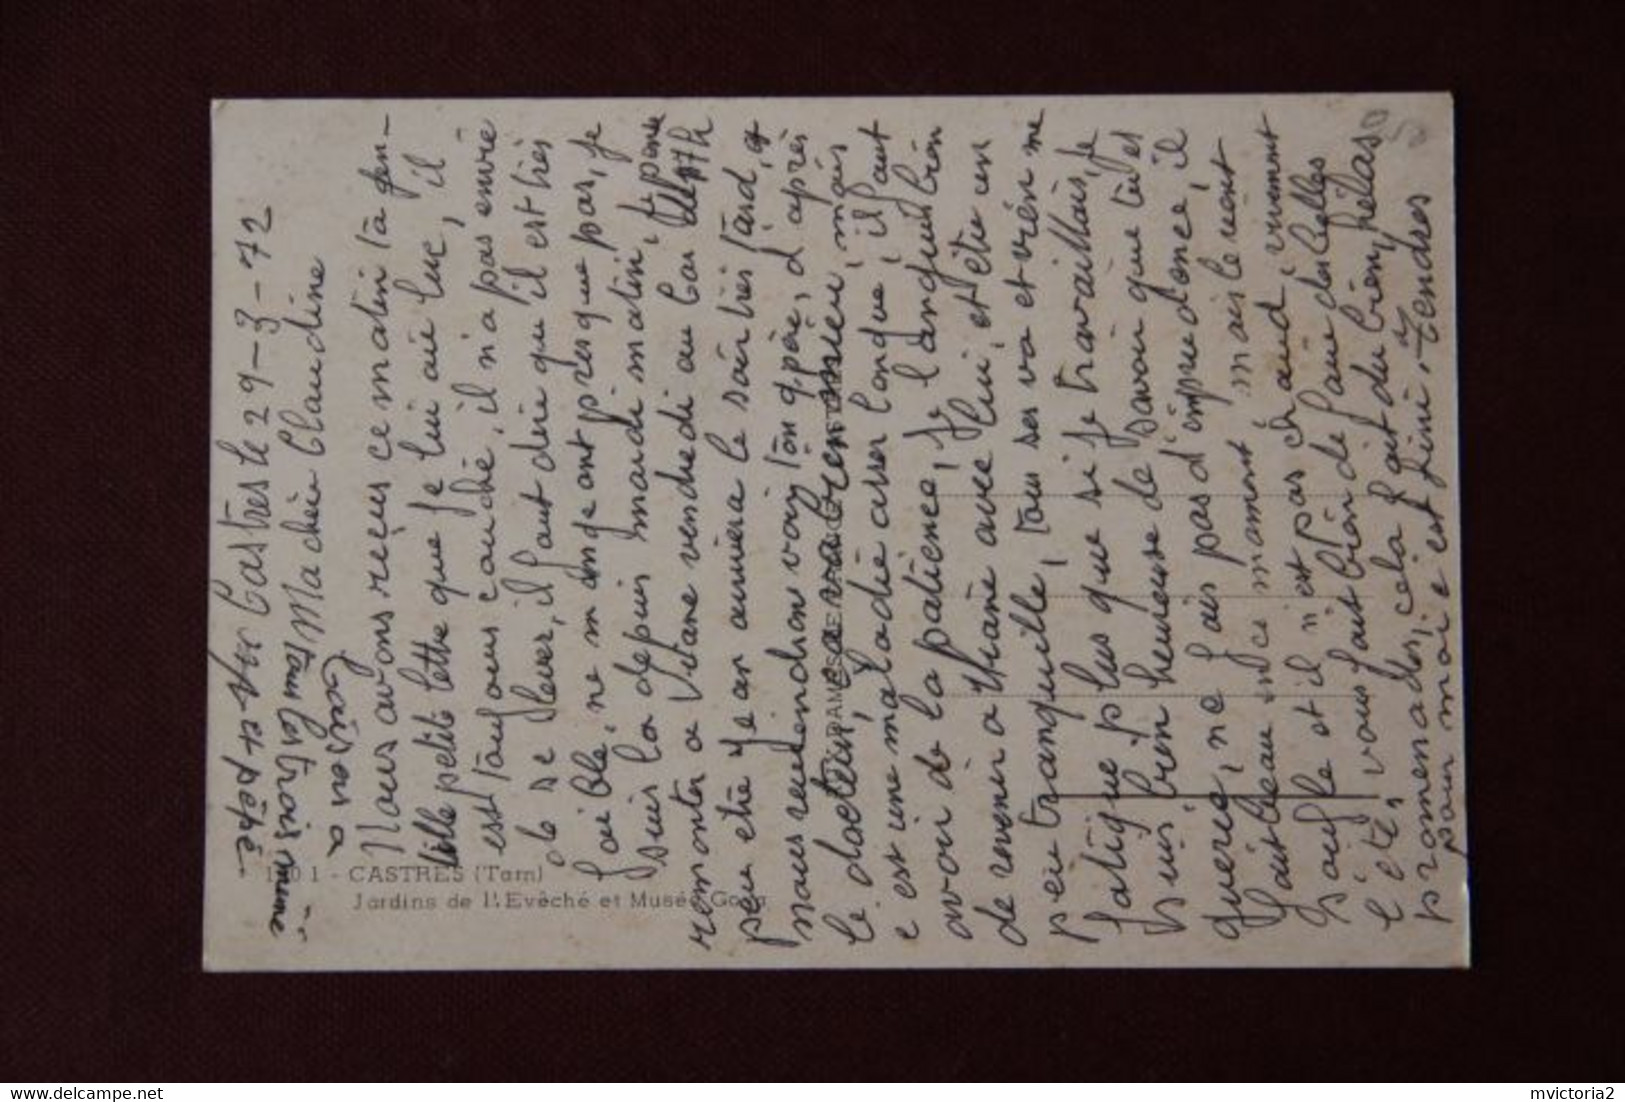 Castres le 29-3-72
Ma chère Claudine
Nous avons reçus ce matin ta gen-
tille petite lettre que je lui ai lue, il
est toujours couché, il n'a pas envie
de se lever, il faut dire qu'il est très
faible, ne mangeant presque pas, je
suis là depuis mardi matin, je pense
remonter a Viane vendredi au car de 17h
peu etre Jean arrivera le soir très tard, et
nous reviendrons voir ton gpère, d'après
le docteur, ca va bien mieu, mais
c est une maladie asser longue, il faut
avoir de la patience, je languis bien
de revenir a Viane avec lui, et être un
peu tranquille, tous ser va et vien me
fatigue plus que si je travaillais, je
suis bien heureuse de savoir que tu es
guerie, ne fais pas d'imprudence, il
fait beau en ce moment, mais le vent
soufle et il n'est pas chaud, vivement
l'été, vous fait bien de faire des belles
promenades, cela fait du bien, hélas
pour moi c est fini. Tendres
baisers a
tous les trois mémé
et pépé.
1301 - CASTRES (Tarn)
Jardins de l'Evêché et Musée Goya
mvictoria2